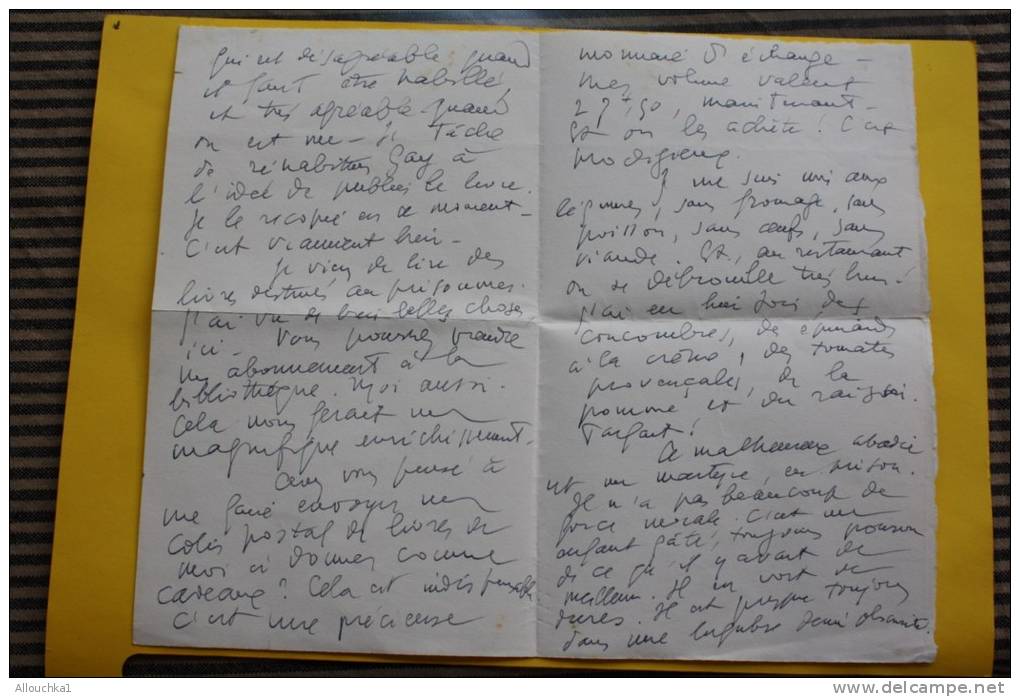 qui est désagréable quand
il faut être habillé,
et très agréable quand
on est nu — je tâche
de réhabituer Gay à
l'idée de publier le livre.
Je le recopie en ce moment —
C'est vraiment bien —
Je viens de lire des
livres destinés aux prisonniers.
J'ai vu de bien belles choses
ici — Vous pourriez prendre
un abonnement à la
bibliothèque. Moi aussi.
Cela nous ferait un
magnifique enrichissement —
Avez vous pensé à
me faire envoyer un
colis postal de livres de
moi à donner comme
cadeaux ? Cela est indispensable
c'est une précieuse
monnaie d'échange —
mes volume valent
27f50, maintenant —
Et on les achète ! C'est
prodigieux.
Je me suis mis aux
légumes, sans fromage, sans
poisson, sans œufs, sans
viande. Et, au restaurant
on se débrouille très bien !
J'ai eu hier soir des
concombres, des épinards
à la crème, des tomates
provençales, de la
pomme et du raisin.
Parfait !
Ce malheureux
est un martyre, en prison.
Il n'a pas beaucoup de
force morale. C'est un
enfant gâté, toujours
de ce qu'il y avait de
meilleur. Il en voit de
dures. Il est presque toujours
dans une lugubre demi obscurité.
Allouchka1
delcampe.net